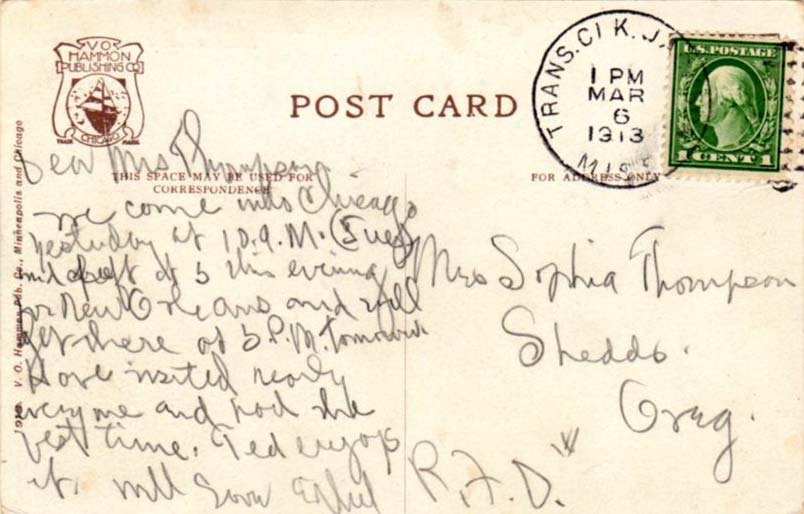 V.O.
HAMMON
PUBLISHING CO
CHICAGO
TRADE MARK
POST CARD
THIS SPACE MAY BE USED FOR
CORRESPONDENCE
FOR ADDRESS ONLY
TRANS. CLK. J.
1 PM
MAR
6
1913
MIS
U.S. POSTAGE
1 CENT 1
V. O. Hammon Pub. Co., Minneapolis and Chicago
Dear Mrs Thompson
We come into Chicago
yesterday at 10.9.M. (Tues)
and left at 5 this evening
for New Orleans and will
get there at 5 P.M. tomorrow
Have visited nearly
every one and had the
best time. Ted enjoys
it. Will Soon Ethel
Mrs Sophia Thompson
Shedds.
Oreg.
R.F.D.